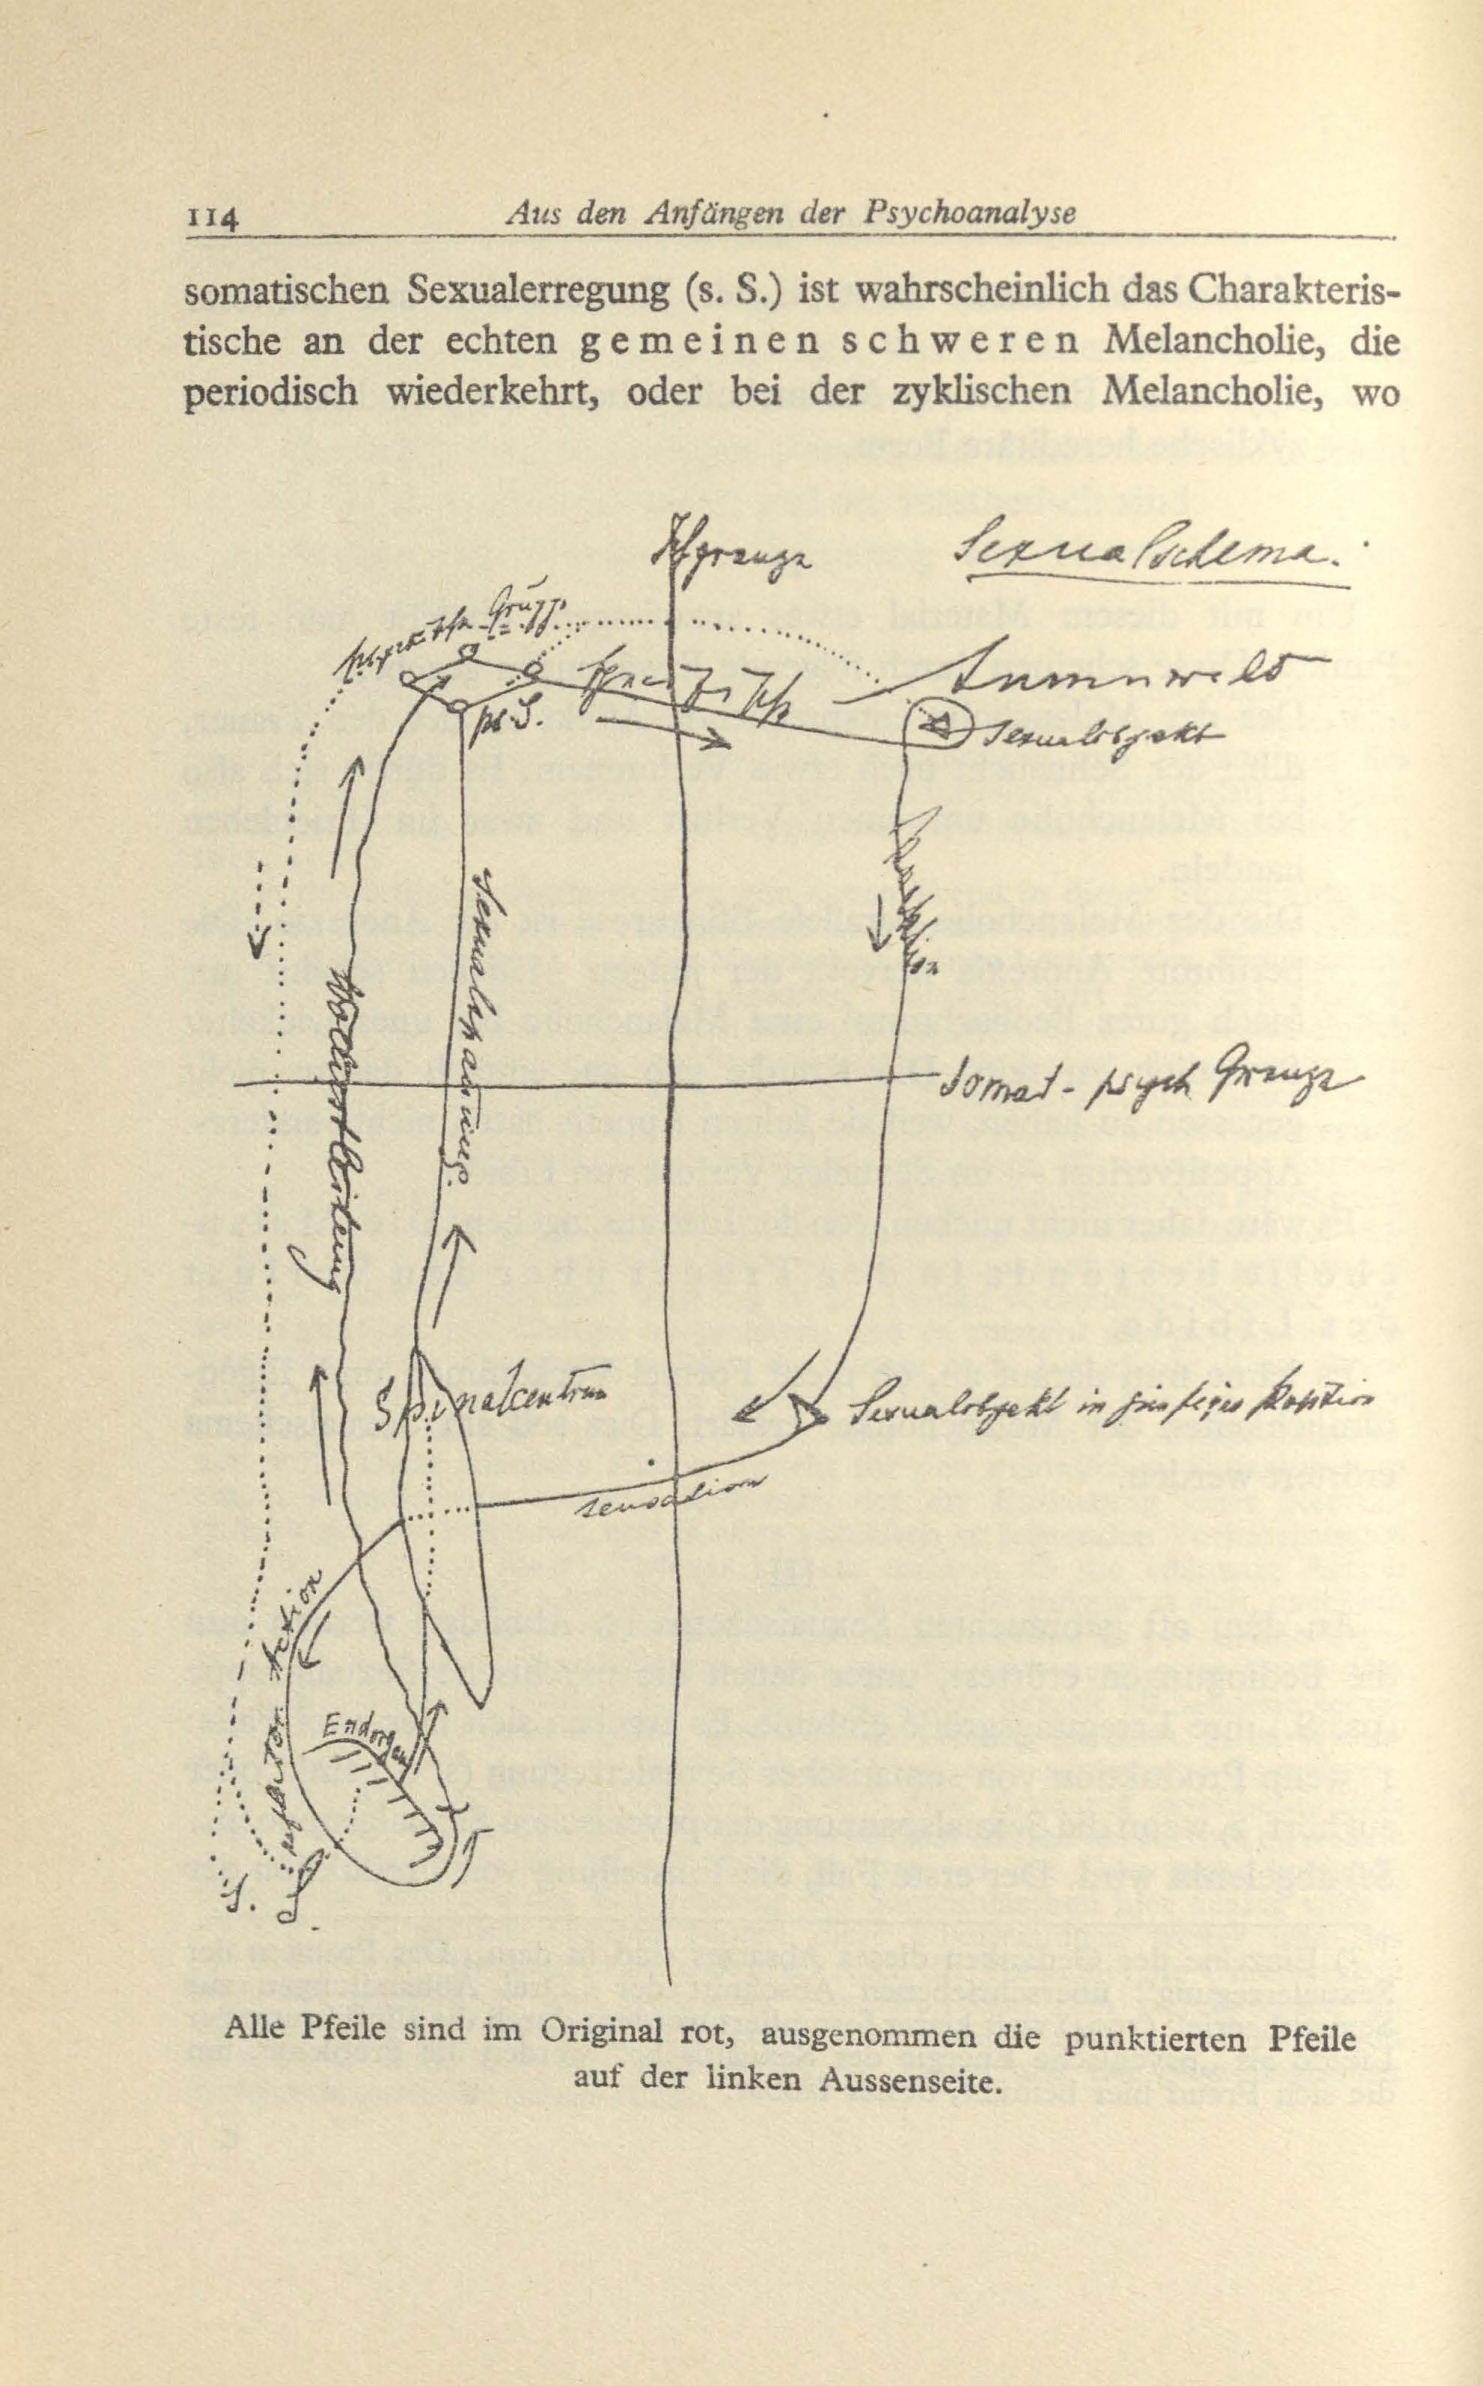 114 Aus den Anfängen der Psychoanalyse
somatischen Sexualerregung (s. S.) ist wahrscheinlich das Charakteris-
tische an der echten gemeinen schweren Melancholie, die
periodisch wiederkehrt, oder bei der zyklischen Melancholie, wo
Ichgrenze
Sexualschema.
psych. Gruppe
ps. S.
Aussenwelt
Sexualobjekt
Sexualspannung.
Wollustleitung
Somat-psych Grenze
Spinalcentrum
Sexualobjekt in Position
sensation
Action
Endorgan
S.
Alle Pfeile sind im Original rot, ausgenommen die punktierten Pfeile
auf der linken Aussenseite.